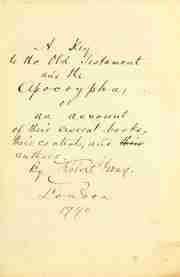 A Key
to the Old Testament
and the
Apocrypha,
or
an account
of their several books,
their contents, and
authors
By Robert Gray.
London
1790